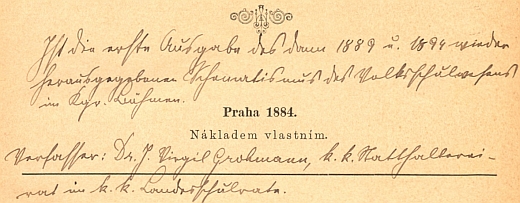 Ist die erste Ausgabe des dann 1889 u. 1894 wieder
herausgegebenen Schematismus des Volksschulwesens
in Kgr. Böhmen.
Praha 1884.
Nákladem vlastním.
Verfasser: Dr. J. Virgil Grohmann, k. k. Statthalterei-
rat im k. k. Landesschulrate.